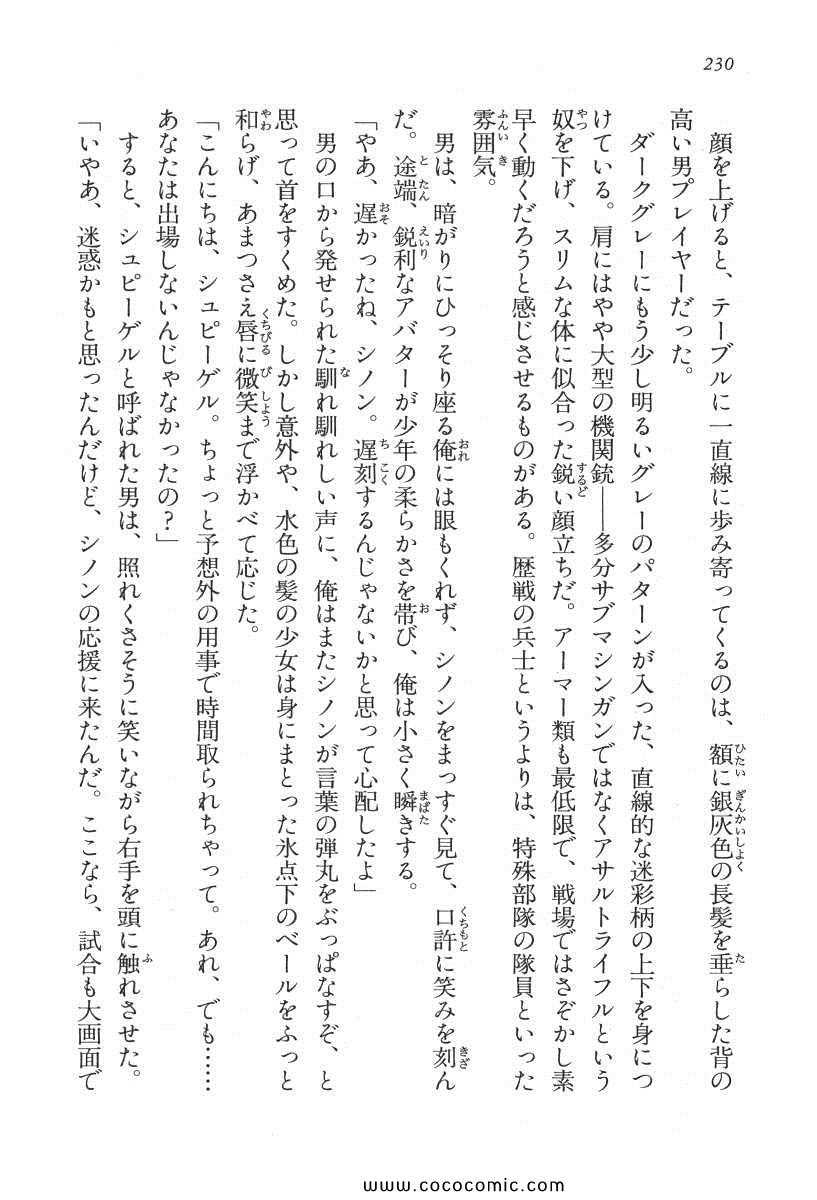 230
顔を上げると、テーブルに一直線に歩み寄ってくるのは、額に銀灰色の長髪を垂らした背の
高い男プレイヤーだった。
ダークグレーにもう少し明るいグレーのパターンが入った、直線的な迷彩柄の上下を身につ
けている。肩にはやや大型の機関銃――多分サブマシンガンではなくアサルトライフルという
奴を下げ、スリムな体に似合った鋭い顔立ちだ。アーマー類も最低限で、戦場ではさぞかし素
早く動くだろうと感じさせるものがある。歴戦の兵士というよりは、特殊部隊の隊員といった
雰囲気。
男は、暗がりにひっそり座る俺には眼もくれず、シノンをまっすぐ見て、口許に笑みを刻ん
だ。途端、鋭利なアバターが少年の柔らかさを帯び、俺は小さく瞬きする。
「やあ、遅かったね、シノン。遅刻するんじゃないかと思って心配したよ」
男の口から発せられた馴れ馴れしい声に、俺はまたシノンが言葉の弾丸をぶっぱなすぞ、と
思って首をすくめた。しかし意外や、水色の髪の少女は身にまとった氷点下のベールをふっと
和らげ、あまつさえ唇に微笑まで浮かべて応じた。
「こんにちは、シュピーゲル。ちょっと予想外の用事で時間取られちゃって。あれ、でも……
あなたは出場しないんじゃなかったの？」
すると、シュピーゲルと呼ばれた男は、照れくさそうに笑いながら右手を頭に触れさせた。
「いやあ、迷惑かもと思ったんだけど、シノンの応援に来たんだ。ここなら、試合も大画面で
www.cococomic.com